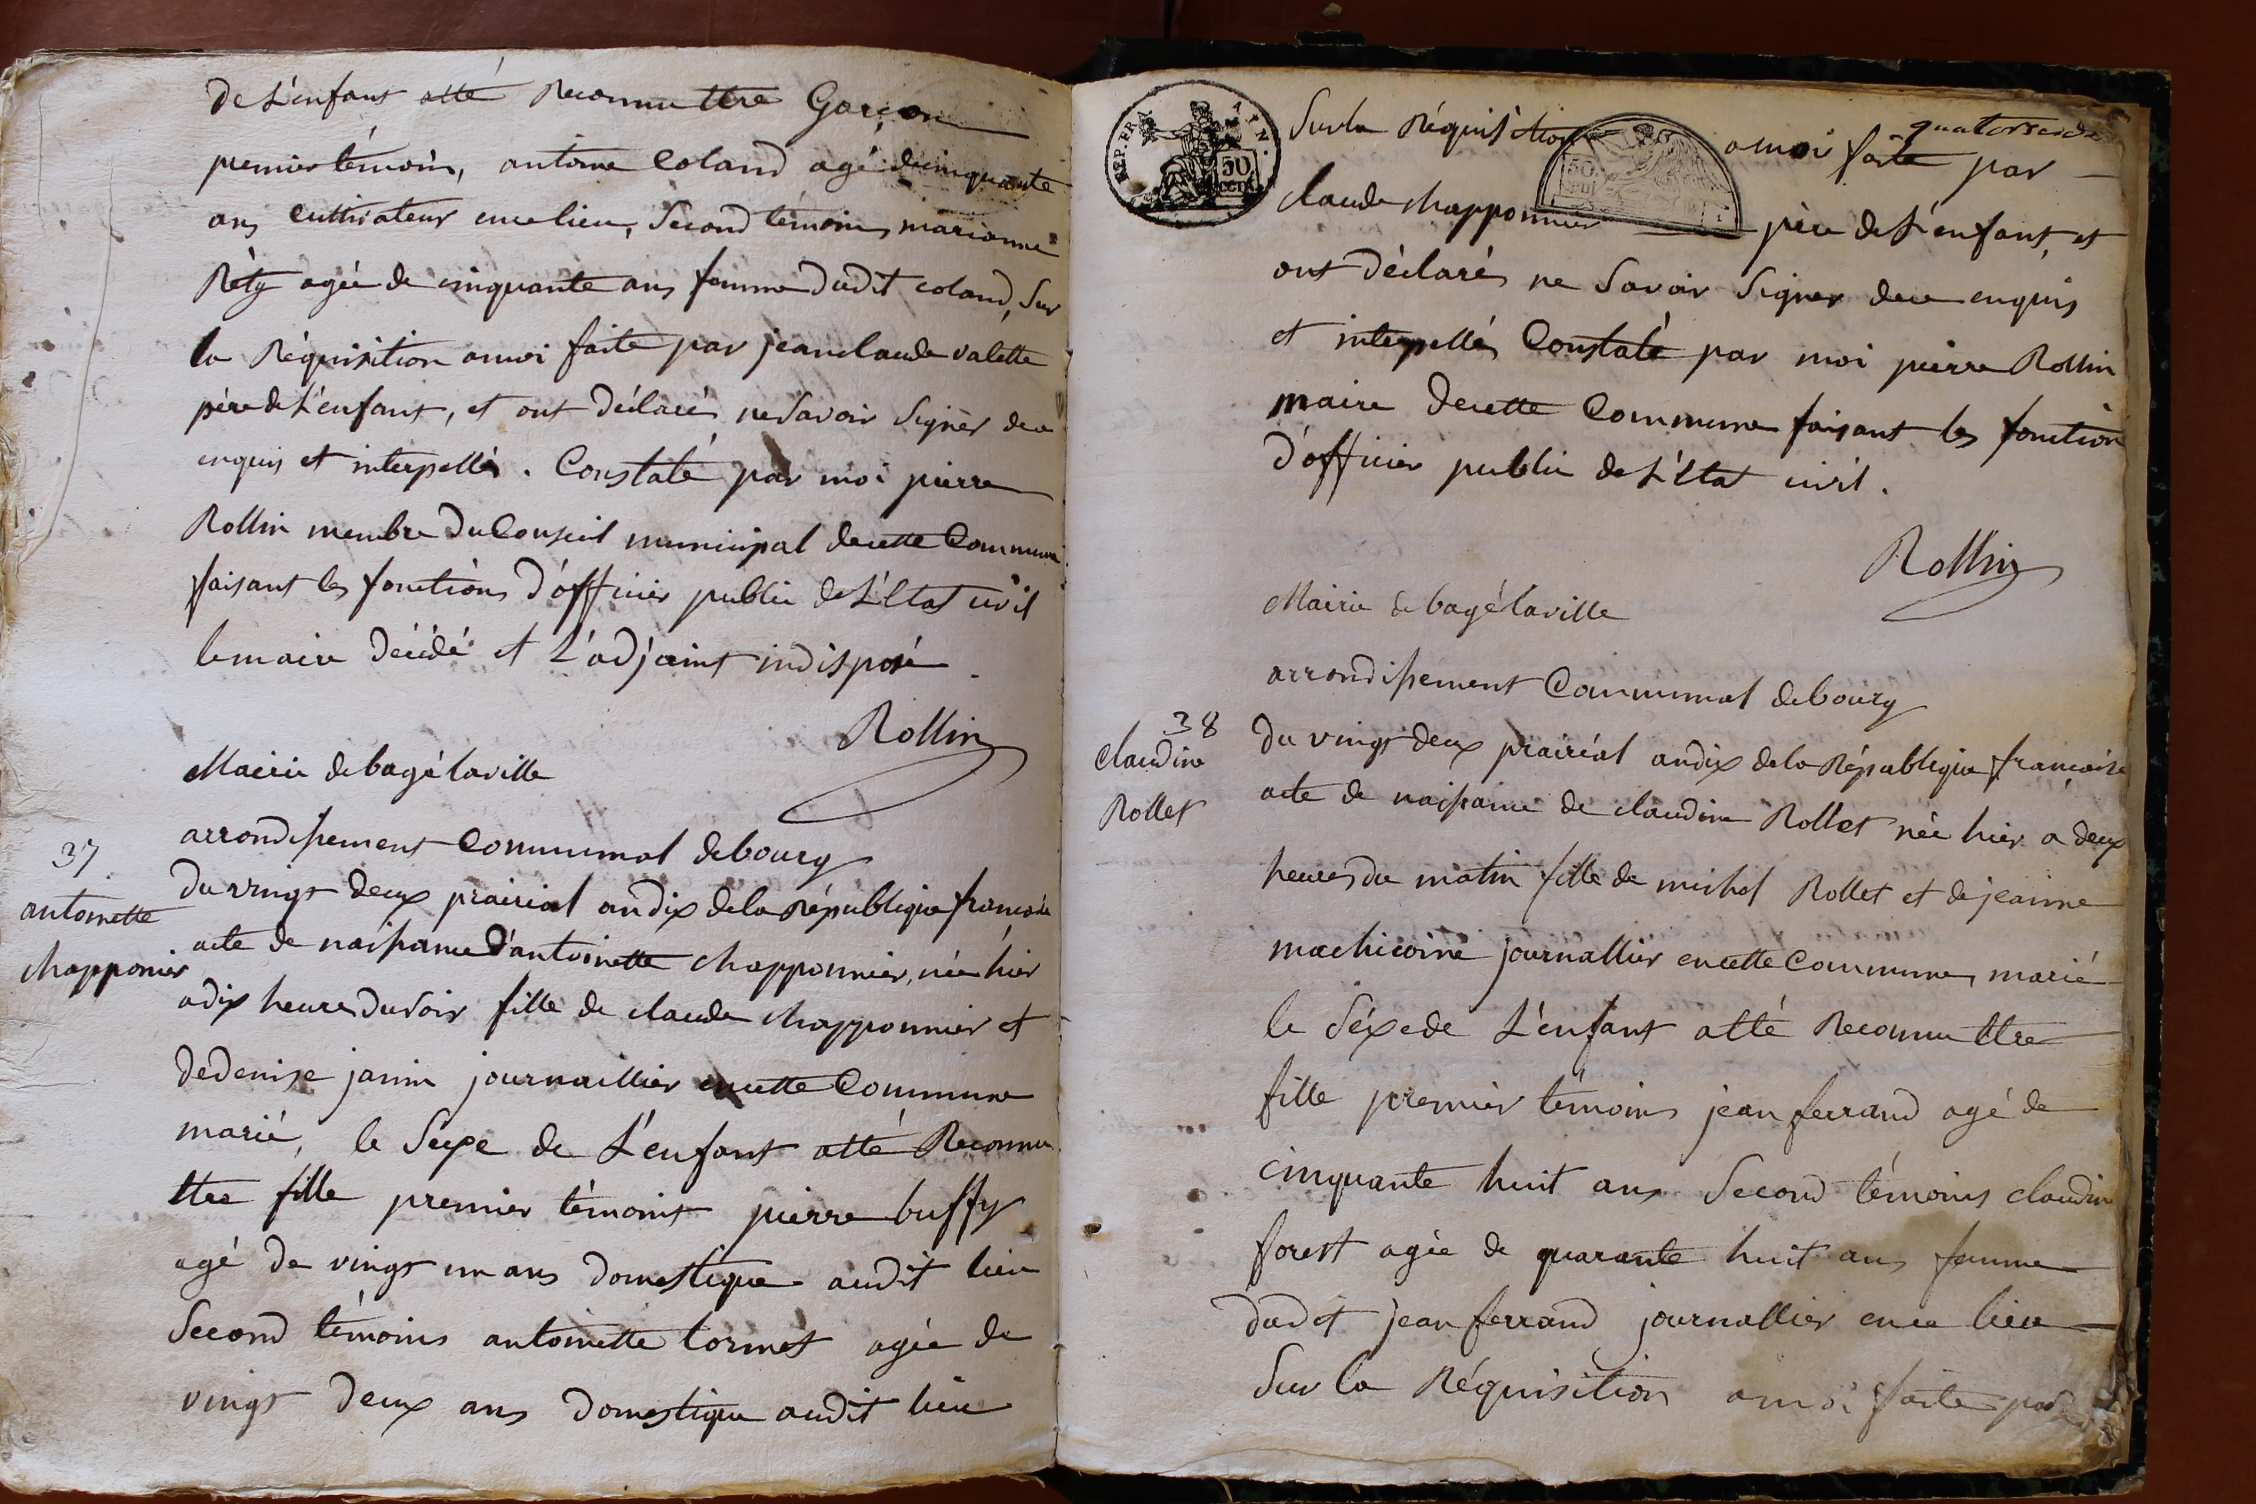 de L'enfant atté Reconnu ttre Garçon
premier témoin, antoine Coland agé de cinquante
ans Cultivateur en ce lieu, Second témoins marianne
Réty agée de cinquante ans femme dudit coland, Sur
la Réquisition a moi faite par jean claude valette
père de L'enfant, et ont déclarés ne Savoir Signér de ce
enquis et interpellés. Constaté par moi pierre
Rollin membre du Conseil municipal de cette Commune
faisant les fonctions d'officier public de L'Etat civil
le maire décédé et L'adjoint indisposé
Rollin
Mairie de bagé la ville
arrondissement Communal de bourg
37.
antoinette
chapponier
Du vingt deux prairial an dix de la République francaise
acte de naissance D'antoinette chapponnier, née hier
a dix heures du Soir fille de claude chapponnier et
de denise janin journaillier en cette Commune
marié, le Sexe de L'enfant atté Reconnu
ttre fille premier témoins pierre buffy
agé de vingt un ans domestique audit lieu
Second témoins antoinette tormet agée de
vingt deux ans domestique audit lieu
REP. FRA
50
CENT
50
quatorze
Sur la Réquisition a moi faite par
claude chapponnier père de L'enfant, et
ont déclarés ne Savoir Signer de ce enquis
et interpellés Constaté par moi pierre Rollin
maire de cette Commune faisant les fonction
d'officier public de L'Etat civil.
Rollin
Mairie de bagé la ville
arrondissement Communal de bourg
38
Claudine
Rollet
Du vingt deux prairial an dix de la République francaise
acte de naissance de claudine Rollet née hier a deux
heures du matin fille de michel Rollet et de jeanne
machicoine journallier en cette Commune, marié
le Séxe de L'enfant atté Reconnu ttre
fille premier témoins jean ferrand agé de
cinquante huit ans Second témoins claudine
forest agée de quarante huit ans femme
dudit jean ferrand journallier en ce lieu
Sur la Réquisition a moi faite par